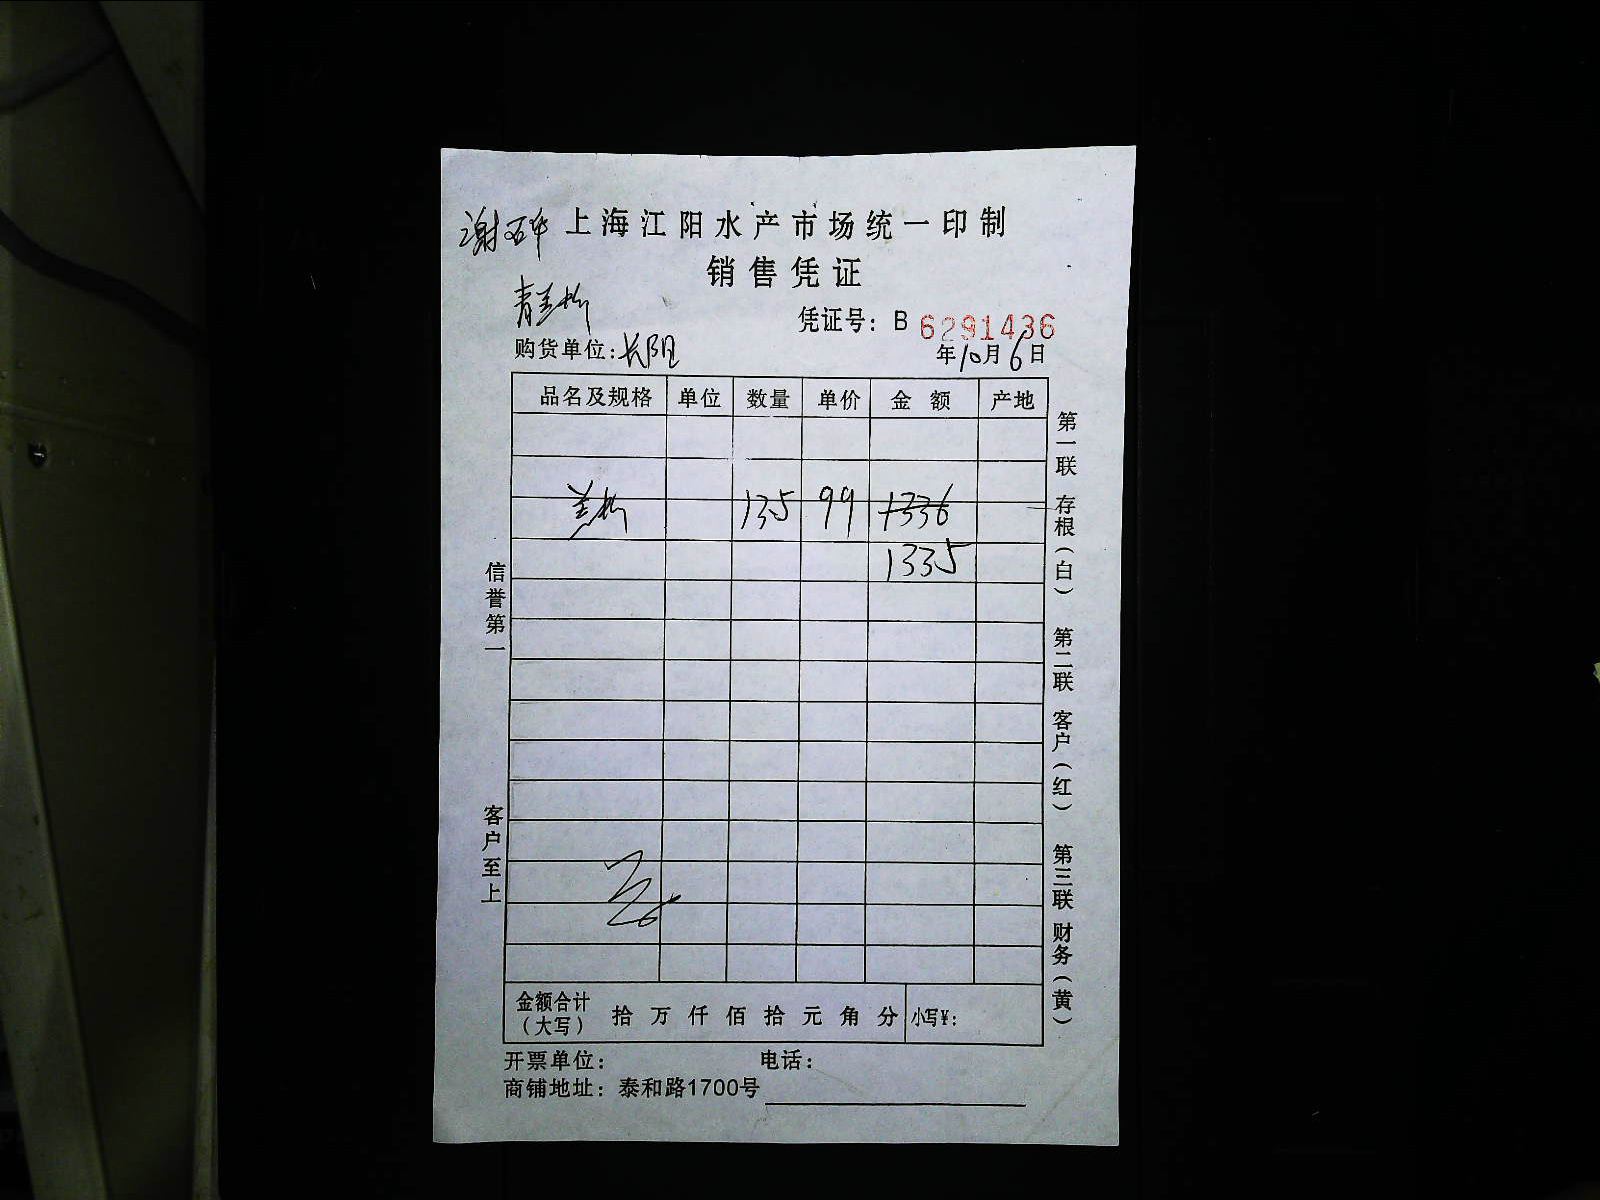 谢 上海江阳水产市场统一印制
销售凭证
青兰
凭证号：B 6291436
购货单位：长阳 年10月6日
品名及规格 单位 数量 单价 金额 产地
兰 135 99 1336
1335
信誉第一
客户至上
第一联 存根（白） 第二联 客户（红） 第三联 财务（黄）
金额合计（大写） 拾 万 仟 佰 拾 元 角 分 小写¥：
开票单位： 电话：
商铺地址：泰和路1700号